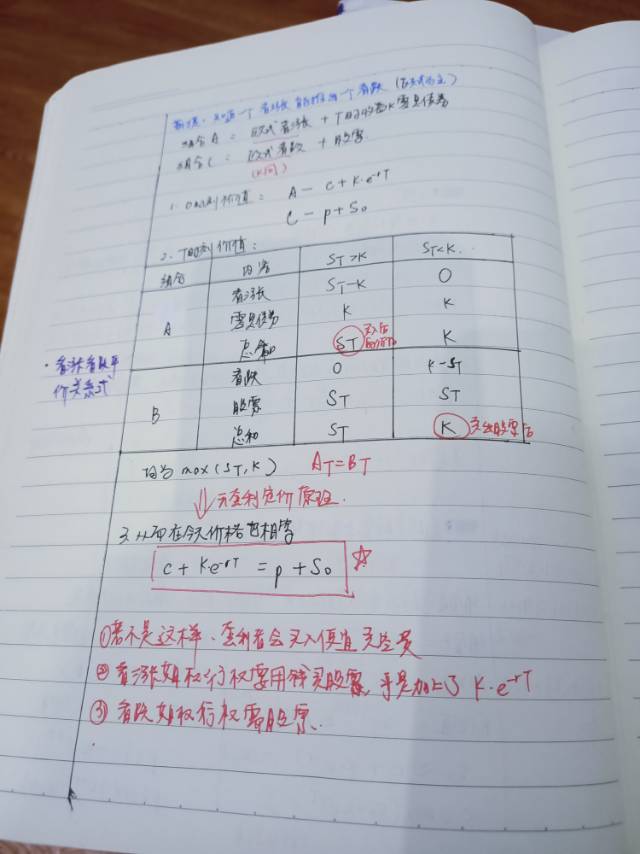 前提：知道一个看涨就能推出一个看跌（欧式为主）
组合A = 欧式看涨 + T时刻的K零息债券
组合C = 欧式看跌 + 股票
(K同)
1. 0时刻价值： A - c + K·e^-rT
C - p + S0
2. T时刻价值：
组合 内容 ST>K ST<K.
看涨 ST-K 0
A 零息债券 K K
总和 ST 买入后 K
看跌 0 K-ST
B 股票 ST ST
总和 ST K 卖出股票后
·看涨看跌平
价关系式
均为 max(ST, K) AT=BT
⇓ 无套利定价原理.
3. 从而在今天价格也相等
c + Ke^-rT = p + S0 ☆
①若不是这样、套利者会买入便宜卖空贵
②看涨期权行权要用钱买股票, 于是加上了 K·e^-rT
③看跌期权行权需股票.